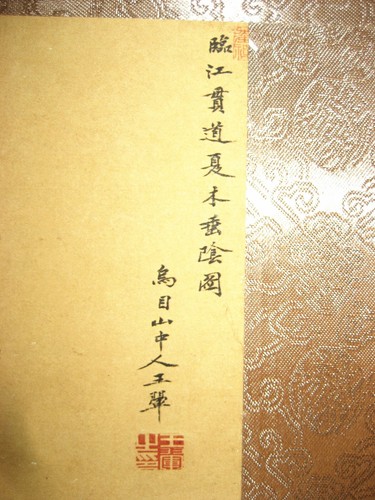 臨江貫道夏木垂陰圖
烏目山中人王翬
王翬之印